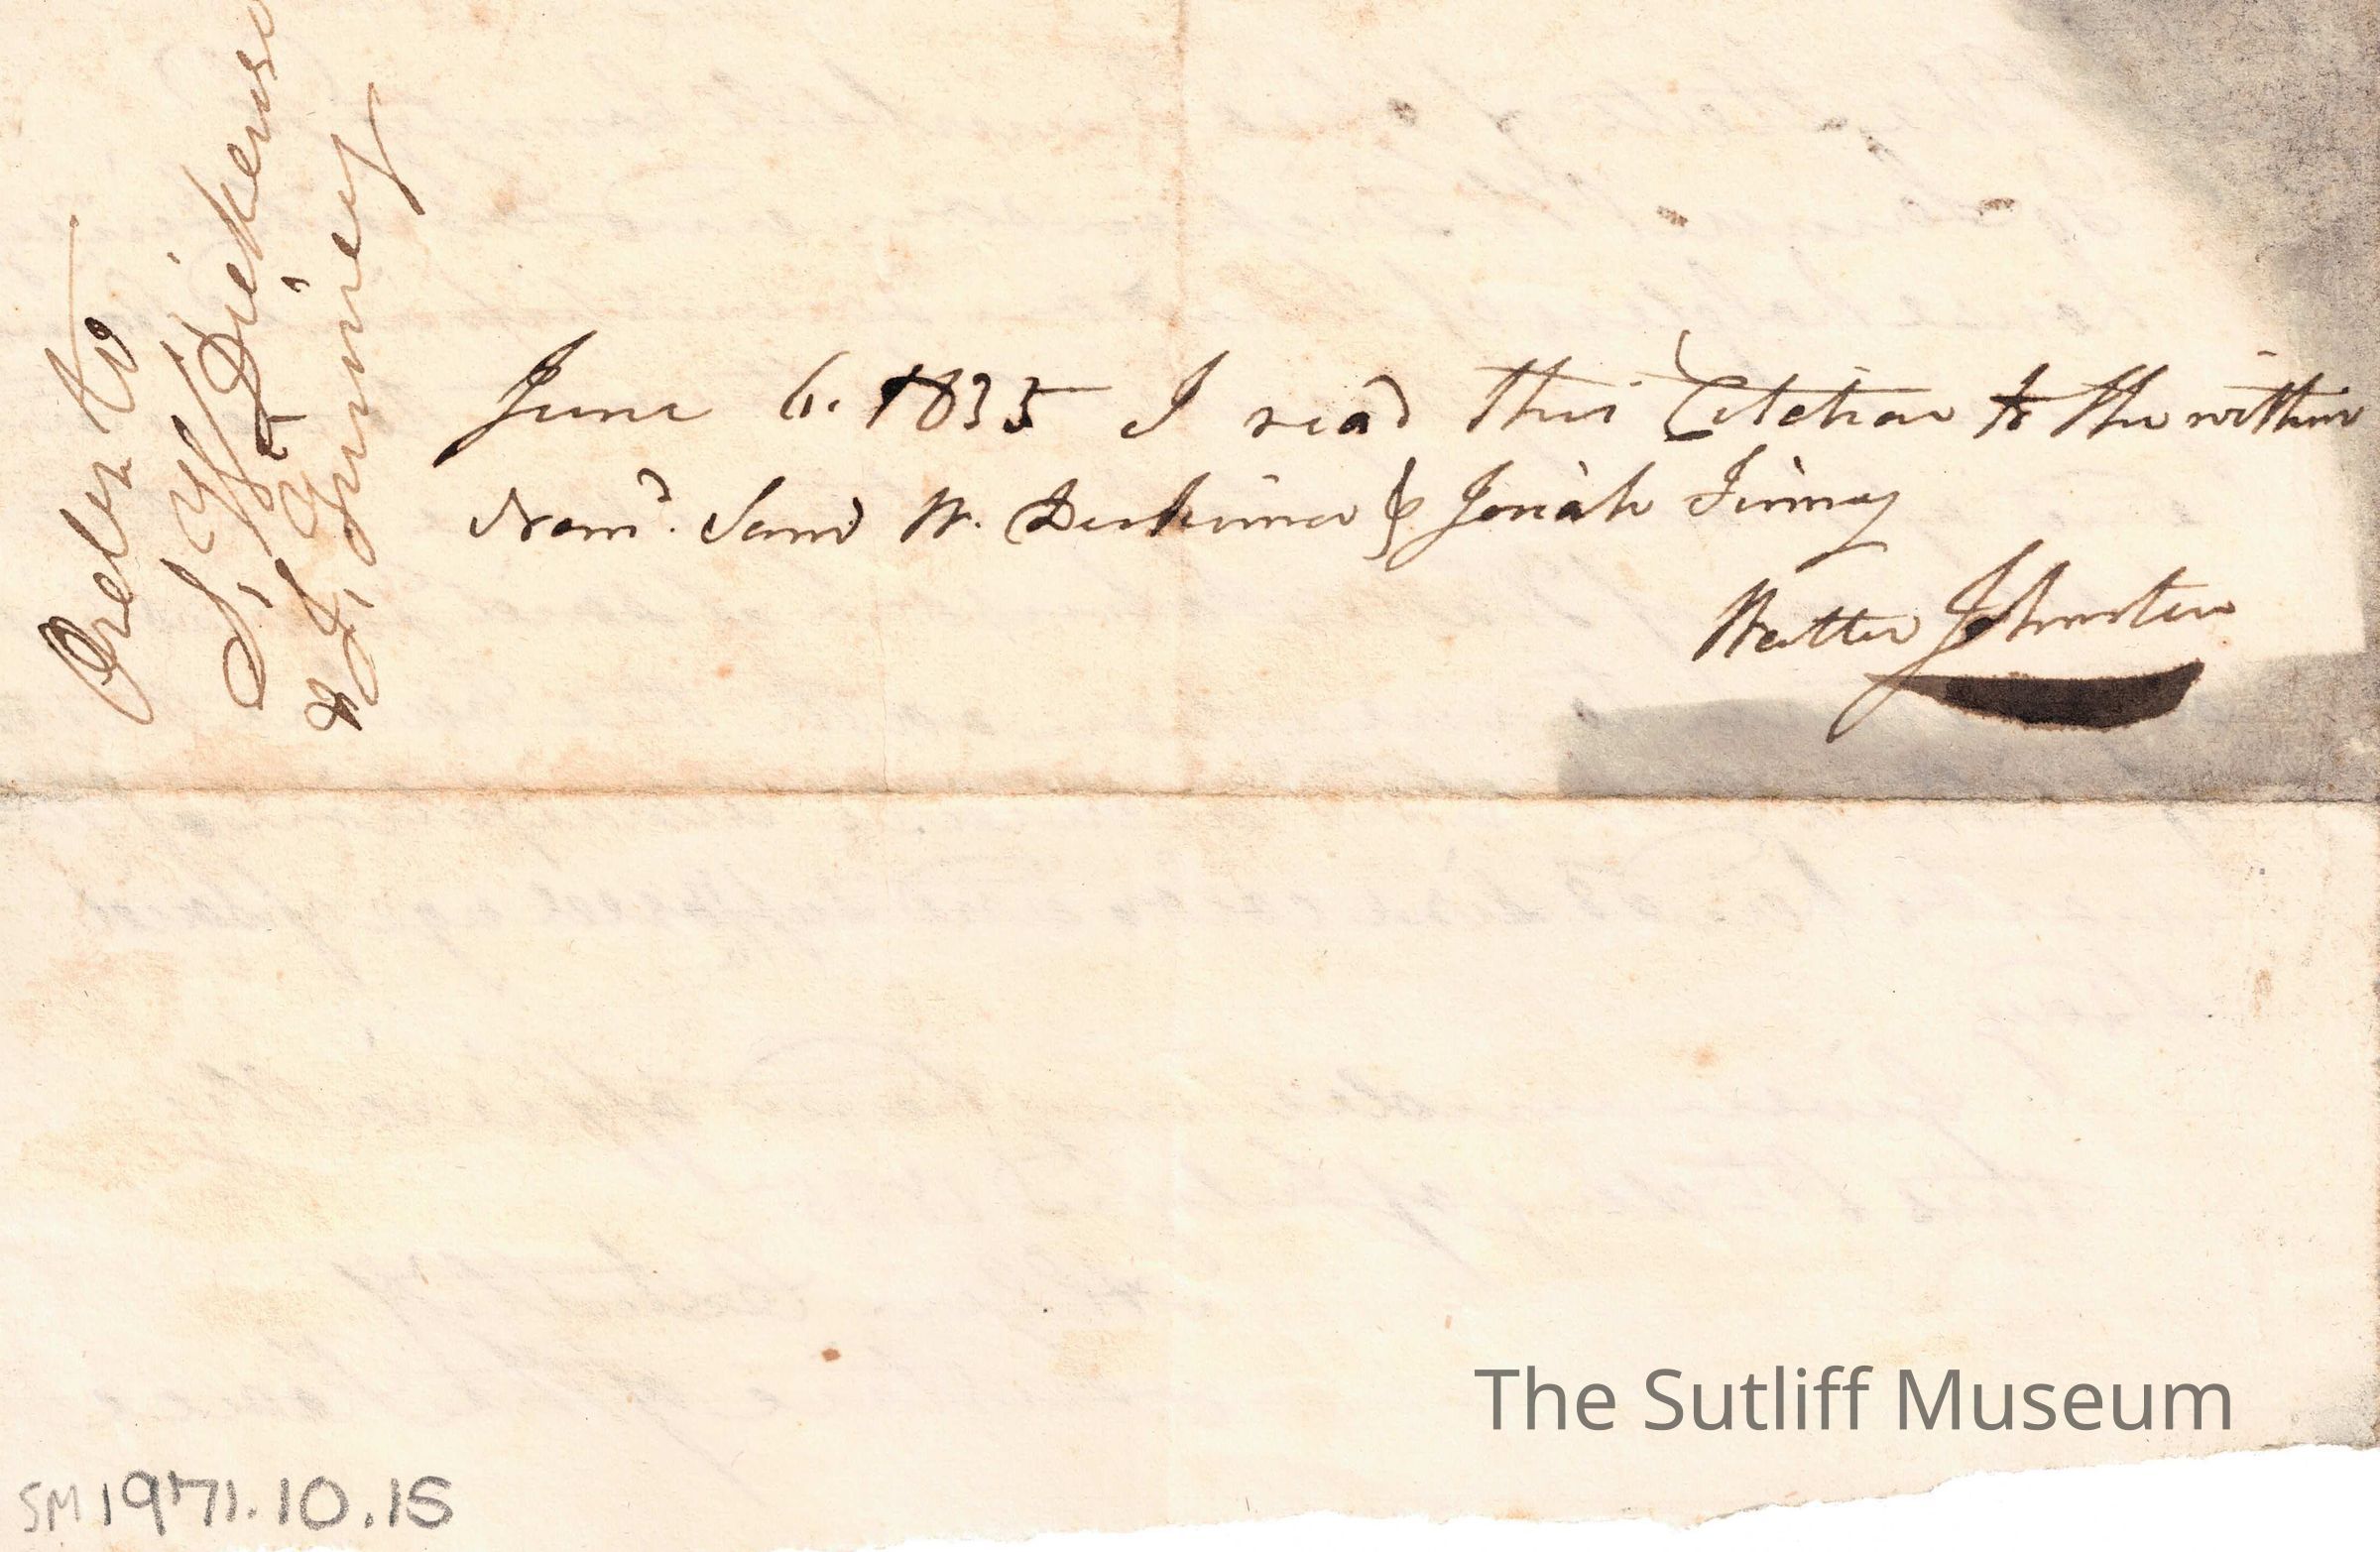 Order to
S. W Dickenso
& J. Finney
June 6. 1835 I read this Citation to the within
Nam'd. Sam'l W. Dickinson & Josiah Finney
Walter Johnston
The Sutliff Museum
SM1971.10.15